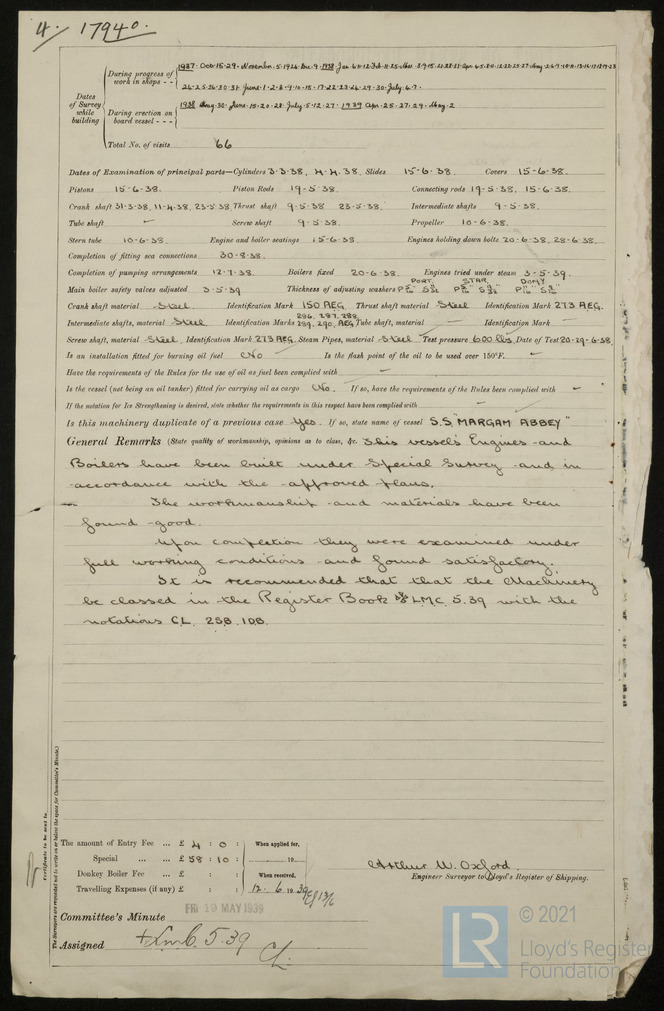 4. 17940.
Dates of Survey while building
During progress of work in shops - -
1937. Oct.15.29. November.5.19.24. Dec.9. 1938 Jan.
June.1.2.8.9.10.15.17.22.23.24.29.30. July.6.7.
During erection on board vessel - - -
1938 Aug.30. June.15.20.28. July.5.12.27. 1939 Apr.25.27.29. May.2
Total No. of visits 66
Dates of Examination of principal parts—Cylinders 3.3.38, 4.4.38. Slides 15.6.38. Covers 15.6.38.
Pistons 15.6.38. Piston Rods 19.5.38. Connecting rods 19.5.38, 15.6.38.
Crank shaft 31.3.38, 11.4.38, 23.5.38. Thrust shaft 9.5.38 23.5.38. Intermediate shafts 9.5.38.
Tube shaft — Screw shaft 9.5.38. Propeller 10.6.38.
Stern tube 10.6.38. Engine and boiler seatings 15.6.38. Engines holding down bolts 20.6.38, 28.6.38.
Completion of fitting sea connections 30.8.38.
Completion of pumping arrangements 12.7.38. Boilers fixed 20.6.38. Engines tried under steam 3.5.39.
Main boiler safety valves adjusted 3.5.39 Thickness of adjusting washers PORT STAR DONKY
Crank shaft material Steel Identification Mark 150 AEG Thrust shaft material Steel Identification Mark 273 AEG.
Intermediate shafts, material Steel Identification Marks 286, 287, 288, 289, 290, AEG Tube shaft, material — Identification Mark —
Screw shaft, material Steel Identification Mark 273 AEG. Steam Pipes, material Steel Test pressure 600 lbs. Date of Test 20.29.6.38.
Is an installation fitted for burning oil fuel No Is the flash point of the oil to be used over 150°F. —
Have the requirements of the Rules for the use of oil as fuel been complied with —
Is the vessel (not being an oil tanker) fitted for carrying oil as cargo No. If so, have the requirements of the Rules been complied with —
If the notation for Ice Strengthening is desired, state whether the requirements in this respect have been complied with —
Is this machinery duplicate of a previous case Yes. If so, state name of vessel S.S. "MARGAM ABBEY"
General Remarks (State quality of workmanship, opinions as to class, &c. This vessel's Engines and
Boilers have been built under Special Survey and in
accordance with the approved plans.
The workmanship and materials have been
found good.
Upon completion they were examined under
full working conditions and found satisfactory.
It is recommended that that the Machinery
be classed in the Register Book LMC 5.39 with the
notations CL. 2SB. 10B.
The amount of Entry Fee ... £ 4 : 0 :
Special ... ... £ 58 : 10 :
Donkey Boiler Fee ... £ : :
Travelling Expenses (if any) £ : :
When applied for,
19
When received,
12. 6. 1939 13/6
Arthur W. Oxford
Engineer Surveyor to Lloyd's Register of Shipping.
Committee's Minute FRI 19 MAY 1939
Assigned + LMC. 5.39
CL.
Certificate to be sent to
(The Surveyors are requested not to write on or below the space for Committee's Minute.)
LR
© 2021
Lloyd's Register
Foundation